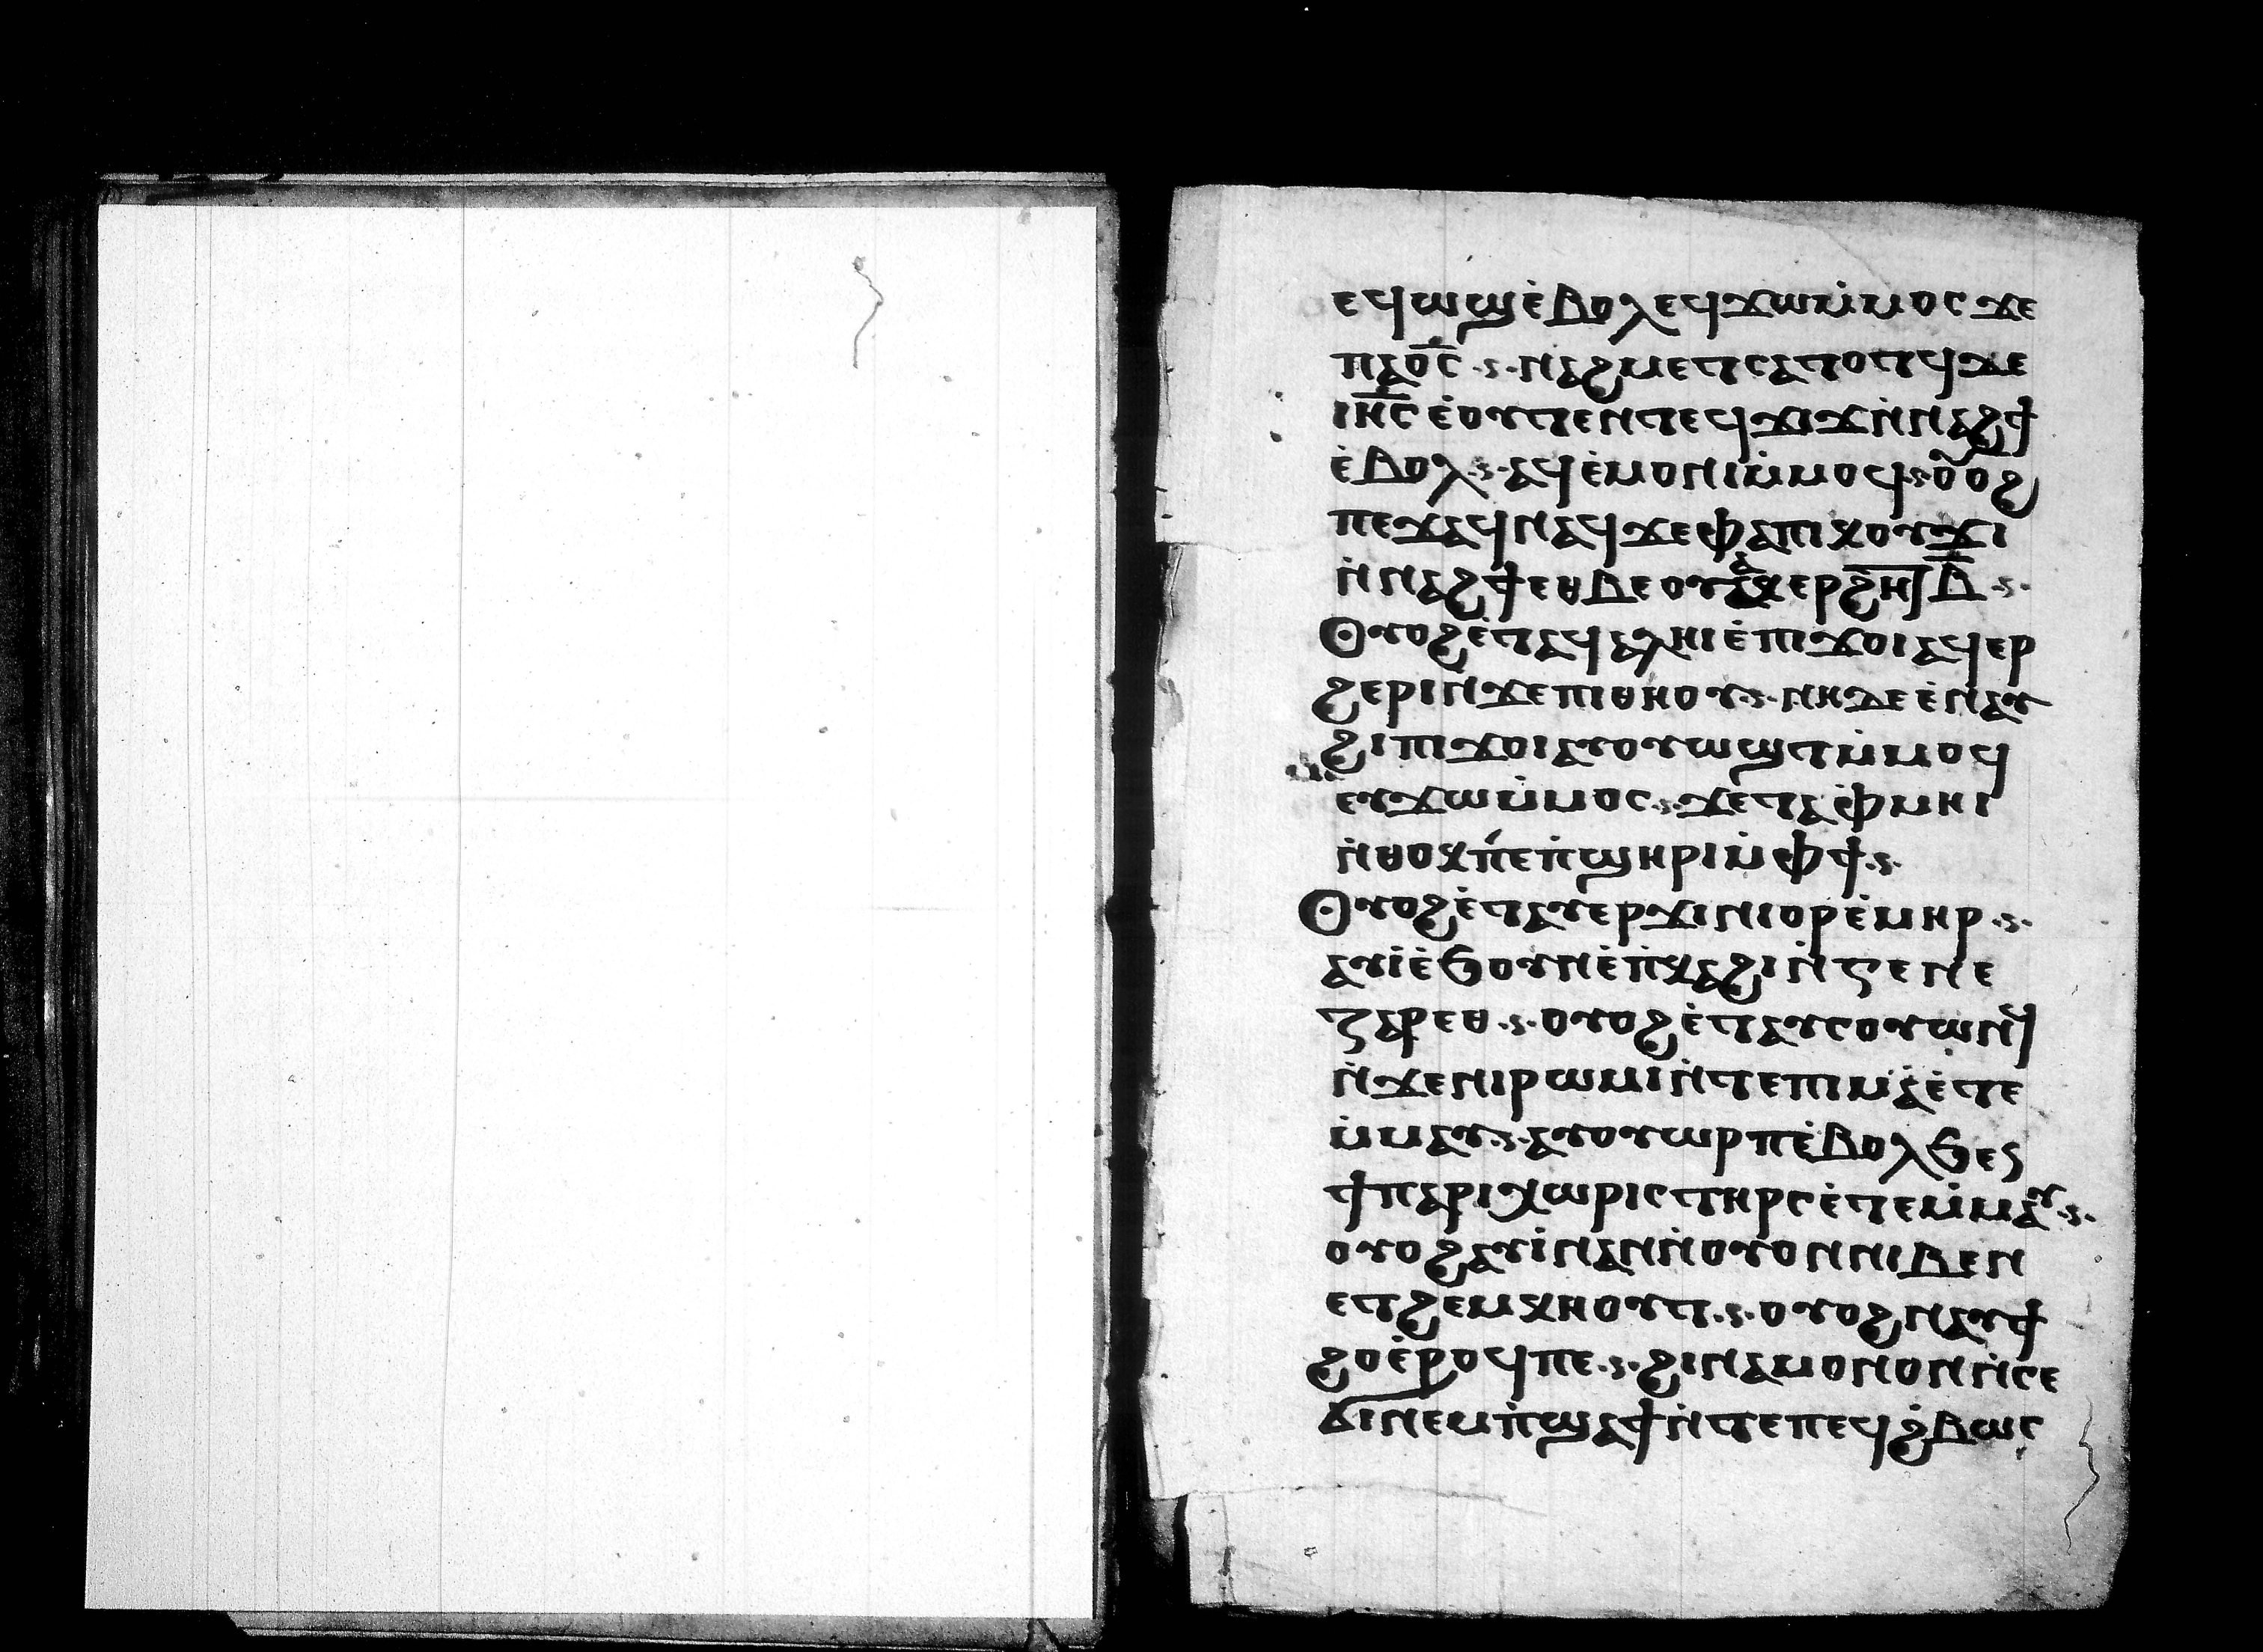 ⲉϥⲱϣ ⲉ̀ⲃⲟⲗ ⲉϥϫⲱ ⲙ̀ⲙⲟⲥ ϫⲉ
ⲡⲁⲟ̅ⲥ̅ ·ⲋ· ⲛⲁϩⲙⲉⲧ ⲥⲁⲧⲟⲧϥ ⲇⲉ
ⲓⲏ̅ⲥ̅ ⲉ̀ⲟⲩⲧⲉⲛ ⲧⲉϥϫⲓϫ ⲛ̀ⲛⲁϩϯ
ⲉ̀ⲃⲟⲗ ·ⲋ· ⲁϥⲉ̀ⲙⲟⲛⲓ ⲙ̀ⲙⲟϥ ·ⲋ· ⲟⲩⲟϩ
ⲡⲉϫⲁϥ ⲛⲁϥ ϫⲉ ⲫⲁ ⲡⲓⲕⲟⲩϫⲓ
ⲛ̀ⲛⲁϩϯ ⲉⲑⲃⲉ ⲟⲩ ⲁⲕⲉⲣϩⲏⲧ ⲃ̅ ·ⲋ·
Ⲟⲩⲟϩ ⲉ̀ⲧⲁϥⲁⲗⲏⲓ ⲉ̀ⲡⲓϫⲟⲓ ⲁϥⲉⲣ
ϩⲉⲣⲓ ⲛϫⲉ ⲡⲓⲑⲏⲟⲩ ·ⲋ· ⲛⲏ ⲇⲉ ⲉ̀ⲛⲁⲩ
ϩⲓ ⲡⲓϫⲟⲓ ⲁⲩⲟⲩⲱϣⲧ ⲙ̀ⲙⲟϥ
ⲉⲩϫⲱ ⲙ̀ⲙⲟⲥ ·ⲋ· ϫⲉ ⲧⲁ ⲫ̀ⲙⲏⲓ
ⲛ̀ⲑⲟⲕ ⲡⲉ ⲡ̀ϣⲏⲣⲓ ⲙ̀ⲫϯ ·ⲋ·
Ⲟⲩⲟϩ ⲉ̀ⲧⲁⲩⲉⲣϫⲓⲛⲓⲟⲣ ⲉ̀ⲙⲏⲣ ·ⲋ·
ⲁⲩⲓ̀ ⲉ̀ϧⲟⲩⲛ ⲉ̀ⲡ̀ⲕⲁϩⲓ ⲛ̀ⲅⲉⲛⲉ
ⲍⲁⲣⲉⲑ ·ⲋ· ⲟⲩⲟϩ ⲉ̀ⲧⲁⲩⲥⲟⲩⲱⲛϥ
ⲛ̀ϫⲉ ⲛⲓⲣⲱⲙⲓ ⲛ̀ⲧⲉ ⲡⲓⲙⲁ ⲉ̀ⲧⲉ
ⲙ̀ⲙⲁⲩ ·ⲋ· ⲁⲩⲟⲩⲱⲣⲡ ⲉ̀ⲃⲟⲗ ϧⲉⲛ
ϯⲡⲉⲣⲓⲭⲱⲣⲓⲥ ⲧⲏⲣⲥ ⲉ̀ⲧⲉⲙ̀ⲙⲁⲩ ·ⲋ·
ⲟⲩⲟϩ ⲁⲩⲓ̀ⲛⲓ ⲛⲁϥ ⲛ̀ⲟⲩⲟⲛ ⲛⲓⲃⲉⲛ
ⲉⲧϩⲉⲙⲕⲏⲟⲩⲧ ·ⲋ· ⲟⲩⲟϩ ⲛⲁⲩϯ
ϩⲟ ⲉ̀ⲣⲟϥ ⲡⲉ ·ⲋ· ϩⲓⲛⲁ ⲙⲟⲛⲟⲛ ⲛ̀ⲥⲉ
ϭⲓ ⲛⲉⲙ ⲡ̀ϣⲧⲁϯ ⲛ̀ⲧⲉ ⲡⲉϥϩ̀ⲃⲱⲥ